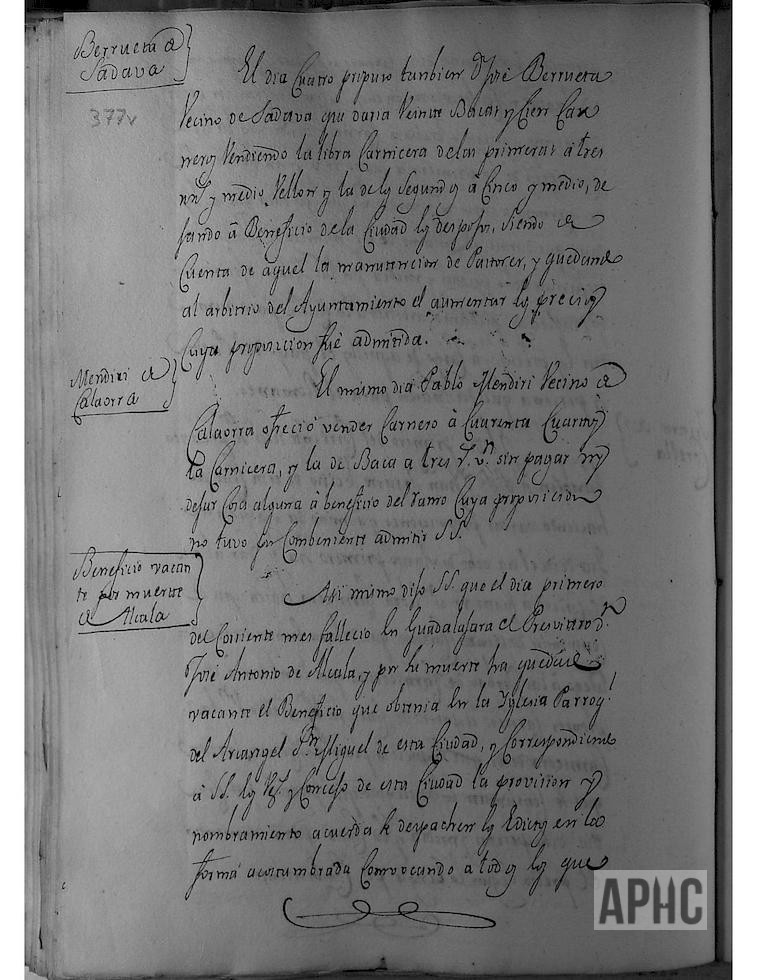 Berrueta de
Sadava
377v
El dia Cuatro propuso tambien Dn José Berrueta
Vecino de Sadava que daria Veinte Bacas y Cien Car
neros Vendiendo la libra Carnicera de las primeras á tres
rrs y medio Vellon y la de los Segundos á Cinco y medio, de
jando á Beneficio de la Ciudad los despojos, siendo de
Cuenta de aquel la manutencion de Pastores, y quedando
al arbitrio del Ayuntamiento el aumentar los precios
Cuya proposicion fué admitida.
Mendiri de
Calaorra
El mismo dia Pablo Mendiri Vecino de
Calaorra ofreció vender Carnero á Cuarenta Cuartos
la Carnicera, y la de Baca a tres rs. vn. sin pagar ni
dejar Cosa alguna á beneficio del ramo Cuya proposicion
no tuvo por Combeniente admitir SS.
Beneficio vacan
te por muerte
de Alcala
Asi mismo dijo SS. que el dia primero
del Corriente mes fallecio en Guadalajara el Presvitero dn.
José Antonio de Alcala, y por su muerte ha quedado
vacante el Beneficio que obtenia en la Yglesia Parroql
del Arcangel Sn. Miguel de esta Ciudad, y Correspondiendo
á SS. los y Concejo de esta Ciudad la provision y
nombramiento acuerda se despachen los Edictos en la
forma acostumbrada Convocando a todos los que
APHC